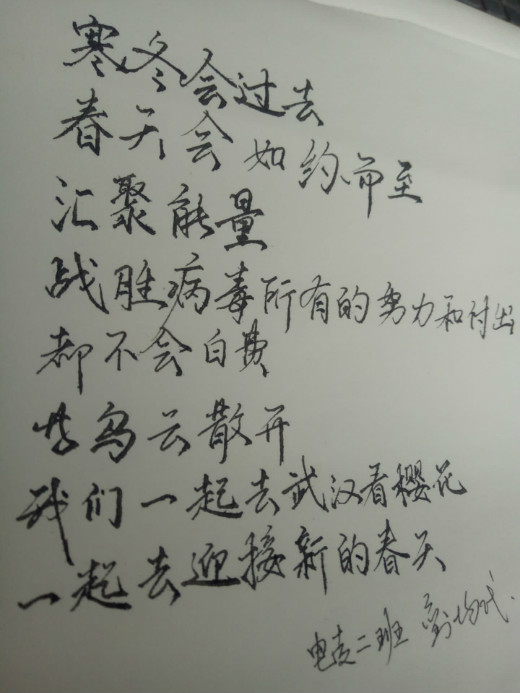 寒冬会过去
春天会如约而至
汇聚能量
战胜病毒所有的努力和付出
都不会白费
当乌云散开
我们一起去武汉看樱花
一起去迎接新的春天
二班